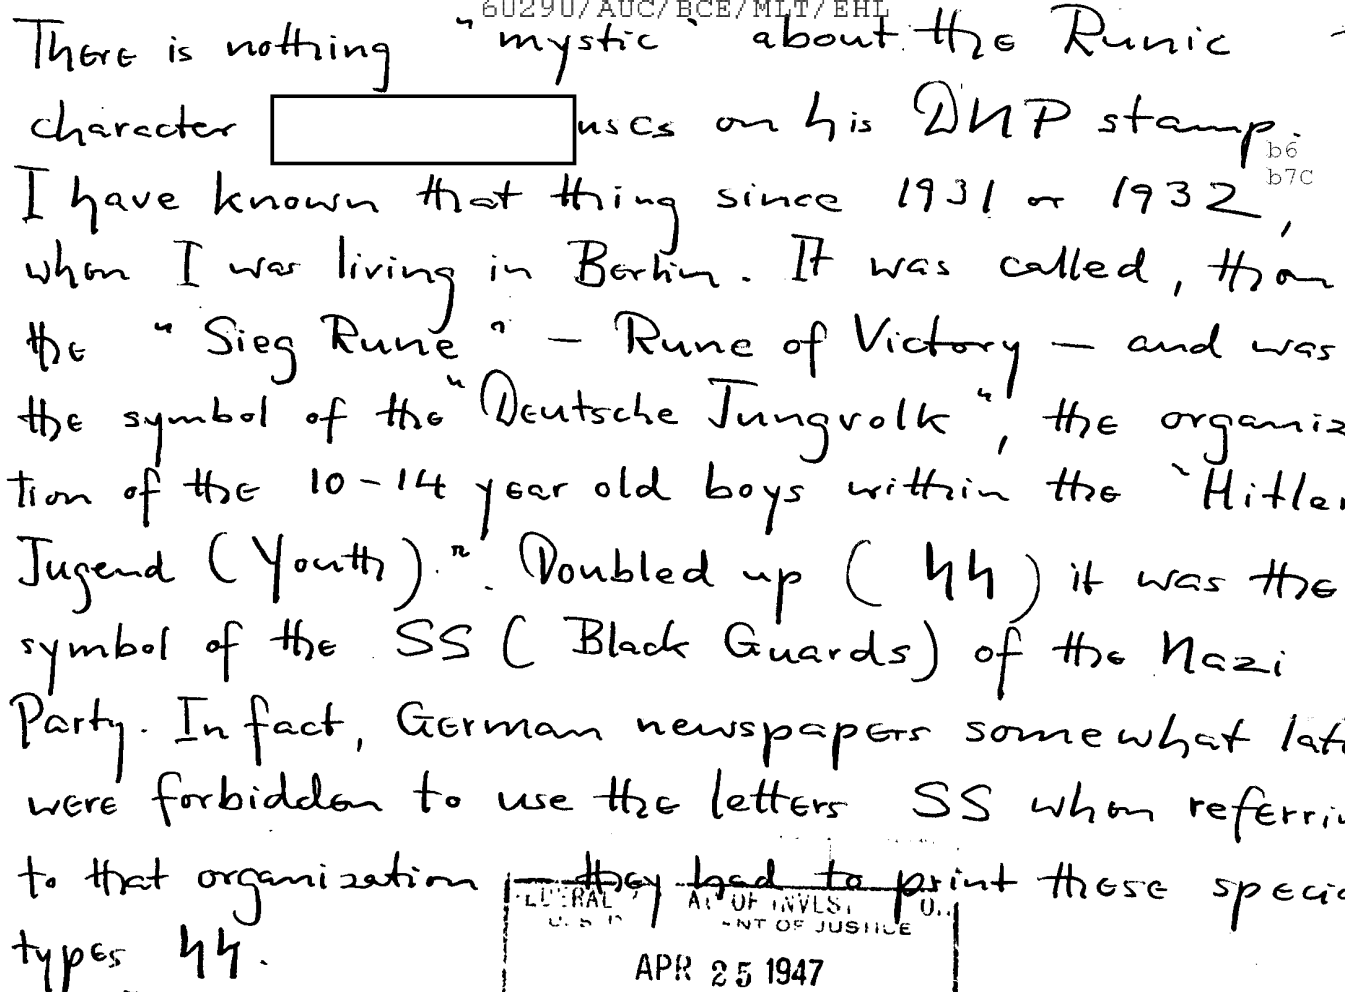 60290/AUC/BCE/MLT/EHL
There is nothing "mystic" about the Runic
character uses on his DNP stamp.
b6
b7C
I have known that thing since 1931 or 1932,
when I was living in Berlin. It was called, then
the "Sieg Rune" — Rune of Victory — and was
the symbol of the "Deutsche Jungvolk", the organiz
tion of the 10-14 year old boys within the "Hitler
Jugend (Youth)." Doubled up (ϟϟ) it was the
symbol of the SS (Black Guards) of the Nazi
Party. In fact, German newspapers somewhat lat
were forbidden to use the letters SS when referri
to that organization — they had to print these speci
types ϟϟ.
OF JUSTICE
APR 25 1947